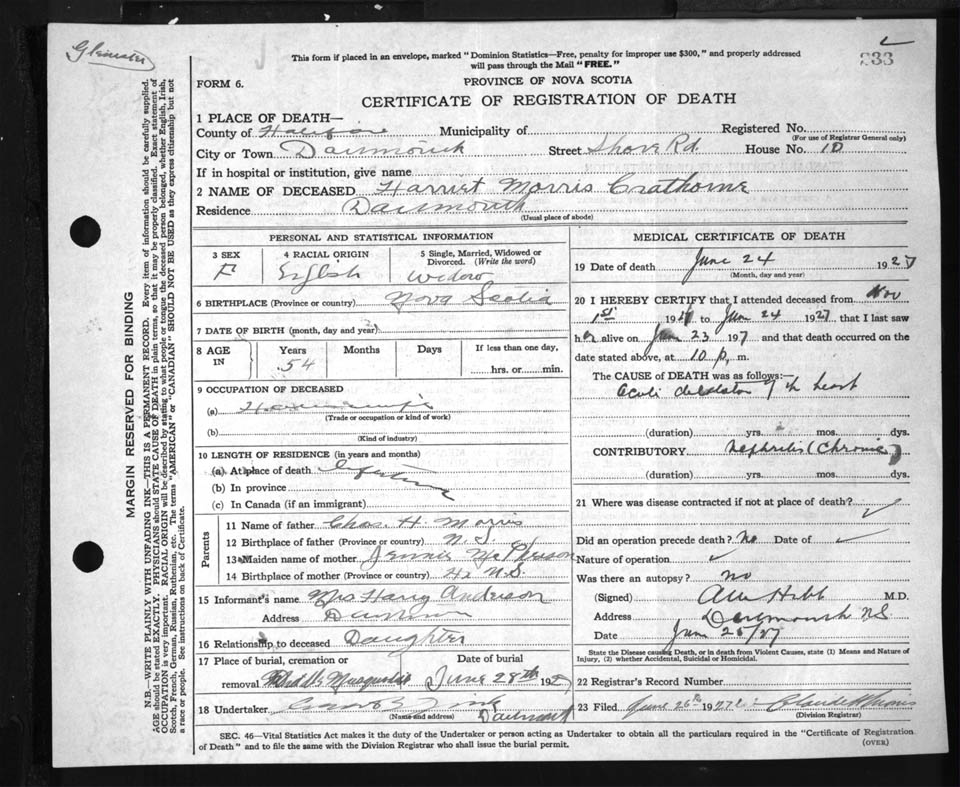 This form if placed in an envelope, marked "Dominion Statistics—Free, penalty for improper use $300," and properly addressed
will pass through the Mail "FREE."
FORM 6.
PROVINCE OF NOVA SCOTIA
CERTIFICATE OF REGISTRATION OF DEATH
1 PLACE OF DEATH—
County of Halifax Municipality of Registered No.
(For use of Registrar General only)
City or Town Dartmouth Street Shore Rd. House No. 10
If in hospital or institution, give name
2 NAME OF DECEASED Harriet Morris Crathorne
Residence Dartmouth
(Usual place of abode)
PERSONAL AND STATISTICAL INFORMATION
3 SEX 4 RACIAL ORIGIN 5 Single, Married, Widowed or
Divorced. (Write the word)
F English Widow
6 BIRTHPLACE (Province or country) Nova Scotia
7 DATE OF BIRTH (month, day and year)
8 AGE IN Years Months Days If less than one day,
54 hrs. or min.
9 OCCUPATION OF DECEASED
(a) Housewife
(Trade or occupation or kind of work)
(b)
(Kind of industry)
10 LENGTH OF RESIDENCE (in years and months)
(a) At place of death Lifetime
(b) In province
(c) In Canada (if an immigrant)
Parents
11 Name of father Chas. H. Morris
12 Birthplace of father (Province or country) N.S.
13 Maiden name of mother Jennie McPherson
14 Birthplace of mother (Province or country) Hx N.S.
15 Informant's name Mrs Harry Anderson
Address
16 Relationship to deceased Daughter
17 Place of burial, cremation or Date of burial
removal June 28th 1927
18 Undertaker
(Name and address) Dartmouth
MEDICAL CERTIFICATE OF DEATH
19 Date of death June 24 1927
(Month, day and year)
20 I HEREBY CERTIFY that I attended deceased from Nov
1st 192 to June 24 1927 that I last saw
her alive on June 23 1927 and that death occurred on the
date stated above, at 10 p. m.
The CAUSE OF DEATH was as follows:—
Acute dilatation of the heart
(duration) yrs. mos. dys.
CONTRIBUTORY Nephritis (Chronic)
(duration) yrs. mos. dys.
21 Where was disease contracted if not at place of death?
Did an operation precede death? No Date of
Nature of operation
Was there an autopsy? no
(Signed) M.D.
Address Dartmouth NS
Date June 25/27
State the Disease causing Death, or in death from Violent Causes, state (1) Means and Nature of
Injury, (2) whether Accidental, Suicidal or Homicidal.
22 Registrar's Record Number
23 Filed June 26th 1927
(Division Registrar)
SEC. 46—Vital Statistics Act makes it the duty of the Undertaker or person acting as Undertaker to obtain all the particulars required in the "Certificate of Registration
of Death" and to file the same with the Division Registrar who shall issue the burial permit.
(OVER)
MARGIN RESERVED FOR BINDING
N.B.—WRITE PLAINLY, WITH UNFADING INK—THIS IS A PERMANENT RECORD. Every item of information should be carefully supplied.
AGE should be stated EXACTLY. PHYSICIANS should STATE CAUSE OF DEATH in plain terms, so that it may be properly classified. Exact statement of
OCCUPATION is very important. RACIAL ORIGIN will be described by stating to what people or tongue the deceased person belonged, whether English, Irish,
Scotch, French, German, Russian, Ruthenian, etc. The terms "AMERICAN" or "CANADIAN" SHOULD NOT BE USED as they express citizenship but not
a race or people. See instructions on back of Certificate.